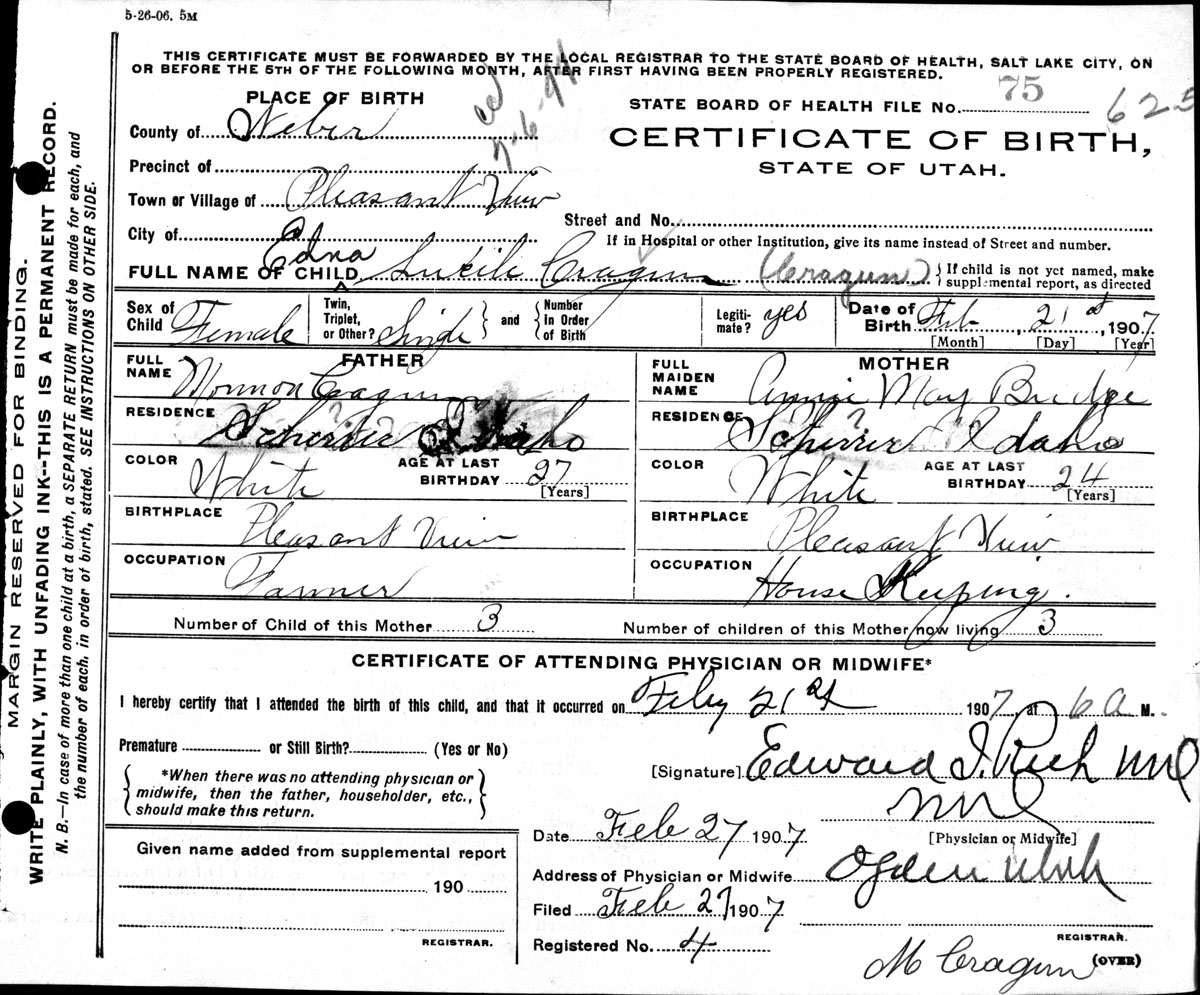 5-26-06. 5M
THIS CERTIFICATE MUST BE FORWARDED BY THE LOCAL REGISTRAR TO THE STATE BOARD OF HEALTH, SALT LAKE CITY, ON
OR BEFORE THE 5TH OF THE FOLLOWING MONTH, AFTER FIRST HAVING BEEN PROPERLY REGISTERED.
PLACE OF BIRTH
STATE BOARD OF HEALTH FILE No. 75 625
County of Weber
CERTIFICATE OF BIRTH,
STATE OF UTAH.
Precinct of
Town or Village of Pleasant View
Street and No.
City of
If in Hospital or other Institution, give its name instead of Street and number.
Edna
FULL NAME OF CHILD Cragun (Cragun) { If child is not yet named, make
supplemental report, as directed
Sex of Child Female
Twin, Triplet, or Other? Single } and { Number In Order of Birth
Legitimate? yes
Date of Birth Feb, 21st, 1907
[Month] [Day] [Year]
FATHER
FULL NAME
RESIDENCE Idaho
COLOR White
AGE AT LAST BIRTHDAY 27
[Years]
BIRTHPLACE Pleasant View
OCCUPATION Farmer
MOTHER
FULL MAIDEN NAME Annie May
RESIDENCE Idaho
COLOR White
AGE AT LAST BIRTHDAY 24
[Years]
BIRTHPLACE Pleasant View
OCCUPATION House Keeping.
Number of Child of this Mother 3
Number of children of this Mother now living 3
CERTIFICATE OF ATTENDING PHYSICIAN OR MIDWIFE*
I hereby certify that I attended the birth of this child, and that it occurred on Feby 21st 1907, at 6 a M.
Premature or Still Birth? (Yes or No)
{ *When there was no attending physician or
midwife, then the father, householder, etc.,
should make this return. }
[Signature] Edward I. Rich MD
MD
[Physician or Midwife]
Date Feb 27 1907
Address of Physician or Midwife Ogden Utah
Filed Feb 27 1907
Registered No. 4
REGISTRAR.
M Cragun (OVER)
Given name added from supplemental report
190
REGISTRAR.
MARGIN RESERVED FOR BINDING.
WRITE PLAINLY, WITH UNFADING INK--THIS IS A PERMANENT RECORD.
N. B.—In case of more than one child at a birth, a SEPARATE RETURN must be made for each, and
the number of each, in order of birth, stated. SEE INSTRUCTIONS ON OTHER SIDE.